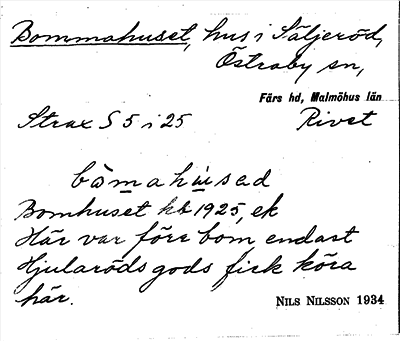 Bommahuset, hus i Säljeröd,
Östraby sn,
Färs hd, Malmöhus län
Strax S 5 i 25 Rivet
bòmahúsad
Bomhuset kb 1925, ek
Här var förr bom endast
Hjularöds gods fick köra
här. NILS NILSSON 1934